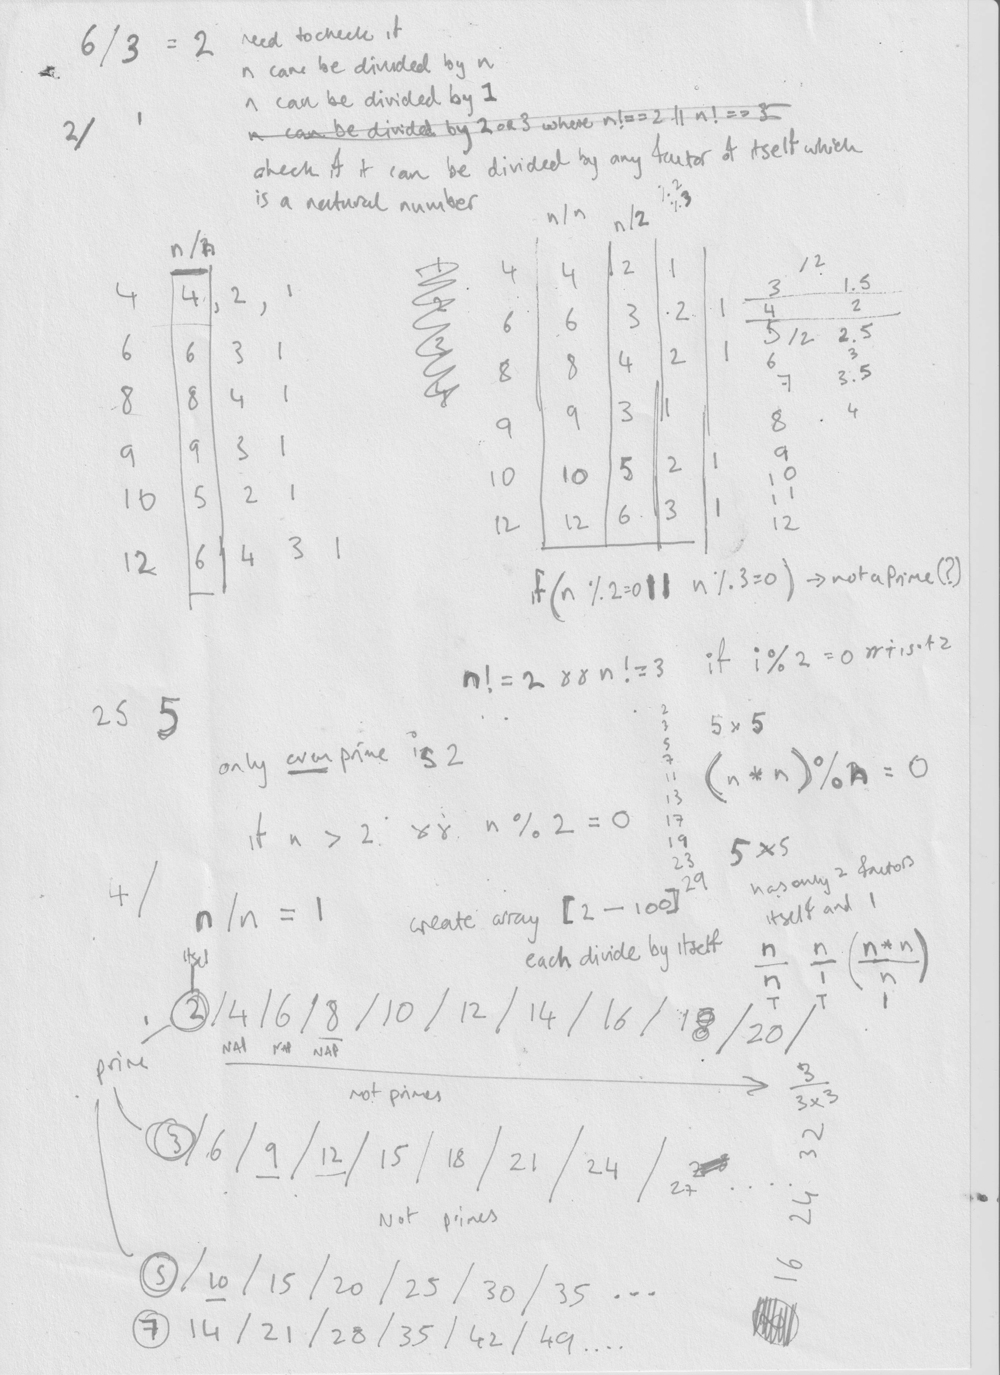 6/3 = 2 need to check if
n cane be divided by n
n can be divided by 1
2/ '
n can be divided by 2 or 3 where n!==2 || n!==3
check if it can be divided by any factor of itself which
is a natural number
n/n
4 4, 2, 1
6 6 3 1
8 8 4 1
9 9 3 1
10 5 2 1
12 6 4 3 1
n/n n/2 %2 %3
4 4 2 1
6 6 3 2 1
8 8 4 2 1
9 9 3 1
10 10 5 2 1
12 12 6 3 1
/2
3 1.5
4 2
5 /2 2.5
6 3
7 3.5
8 4
9
10
11
12
if (n %2=0 || n%3=0) → not a prime (?)
n!=2 && n!=3 if i%2 =0
25 5
only even prime is 2
if n > 2 && n % 2 = 0
2
3
5
7
11
13
17
19
23
29
5 × 5
(n * n) % n = 0
5 × 5
has only 2 factors
itself and 1
4/
n/n = 1
create array [2 - 100]
each divide by itself
n/n n/1 (n*n)/n
1 1 1
itself
2 /4 /6 /8 /10 /12 /14 /16 /18 /20 /
NAP NAP NAP
prime
Not primes
3
3×3
3 /6 /9 /12 /15 /18 /21 /24 / 27 .....
Not primes
16 24 32
5 /10 /15 /20 /25 /30 /35 ...
7 14 /21 /28 /35 /42 /49 ....